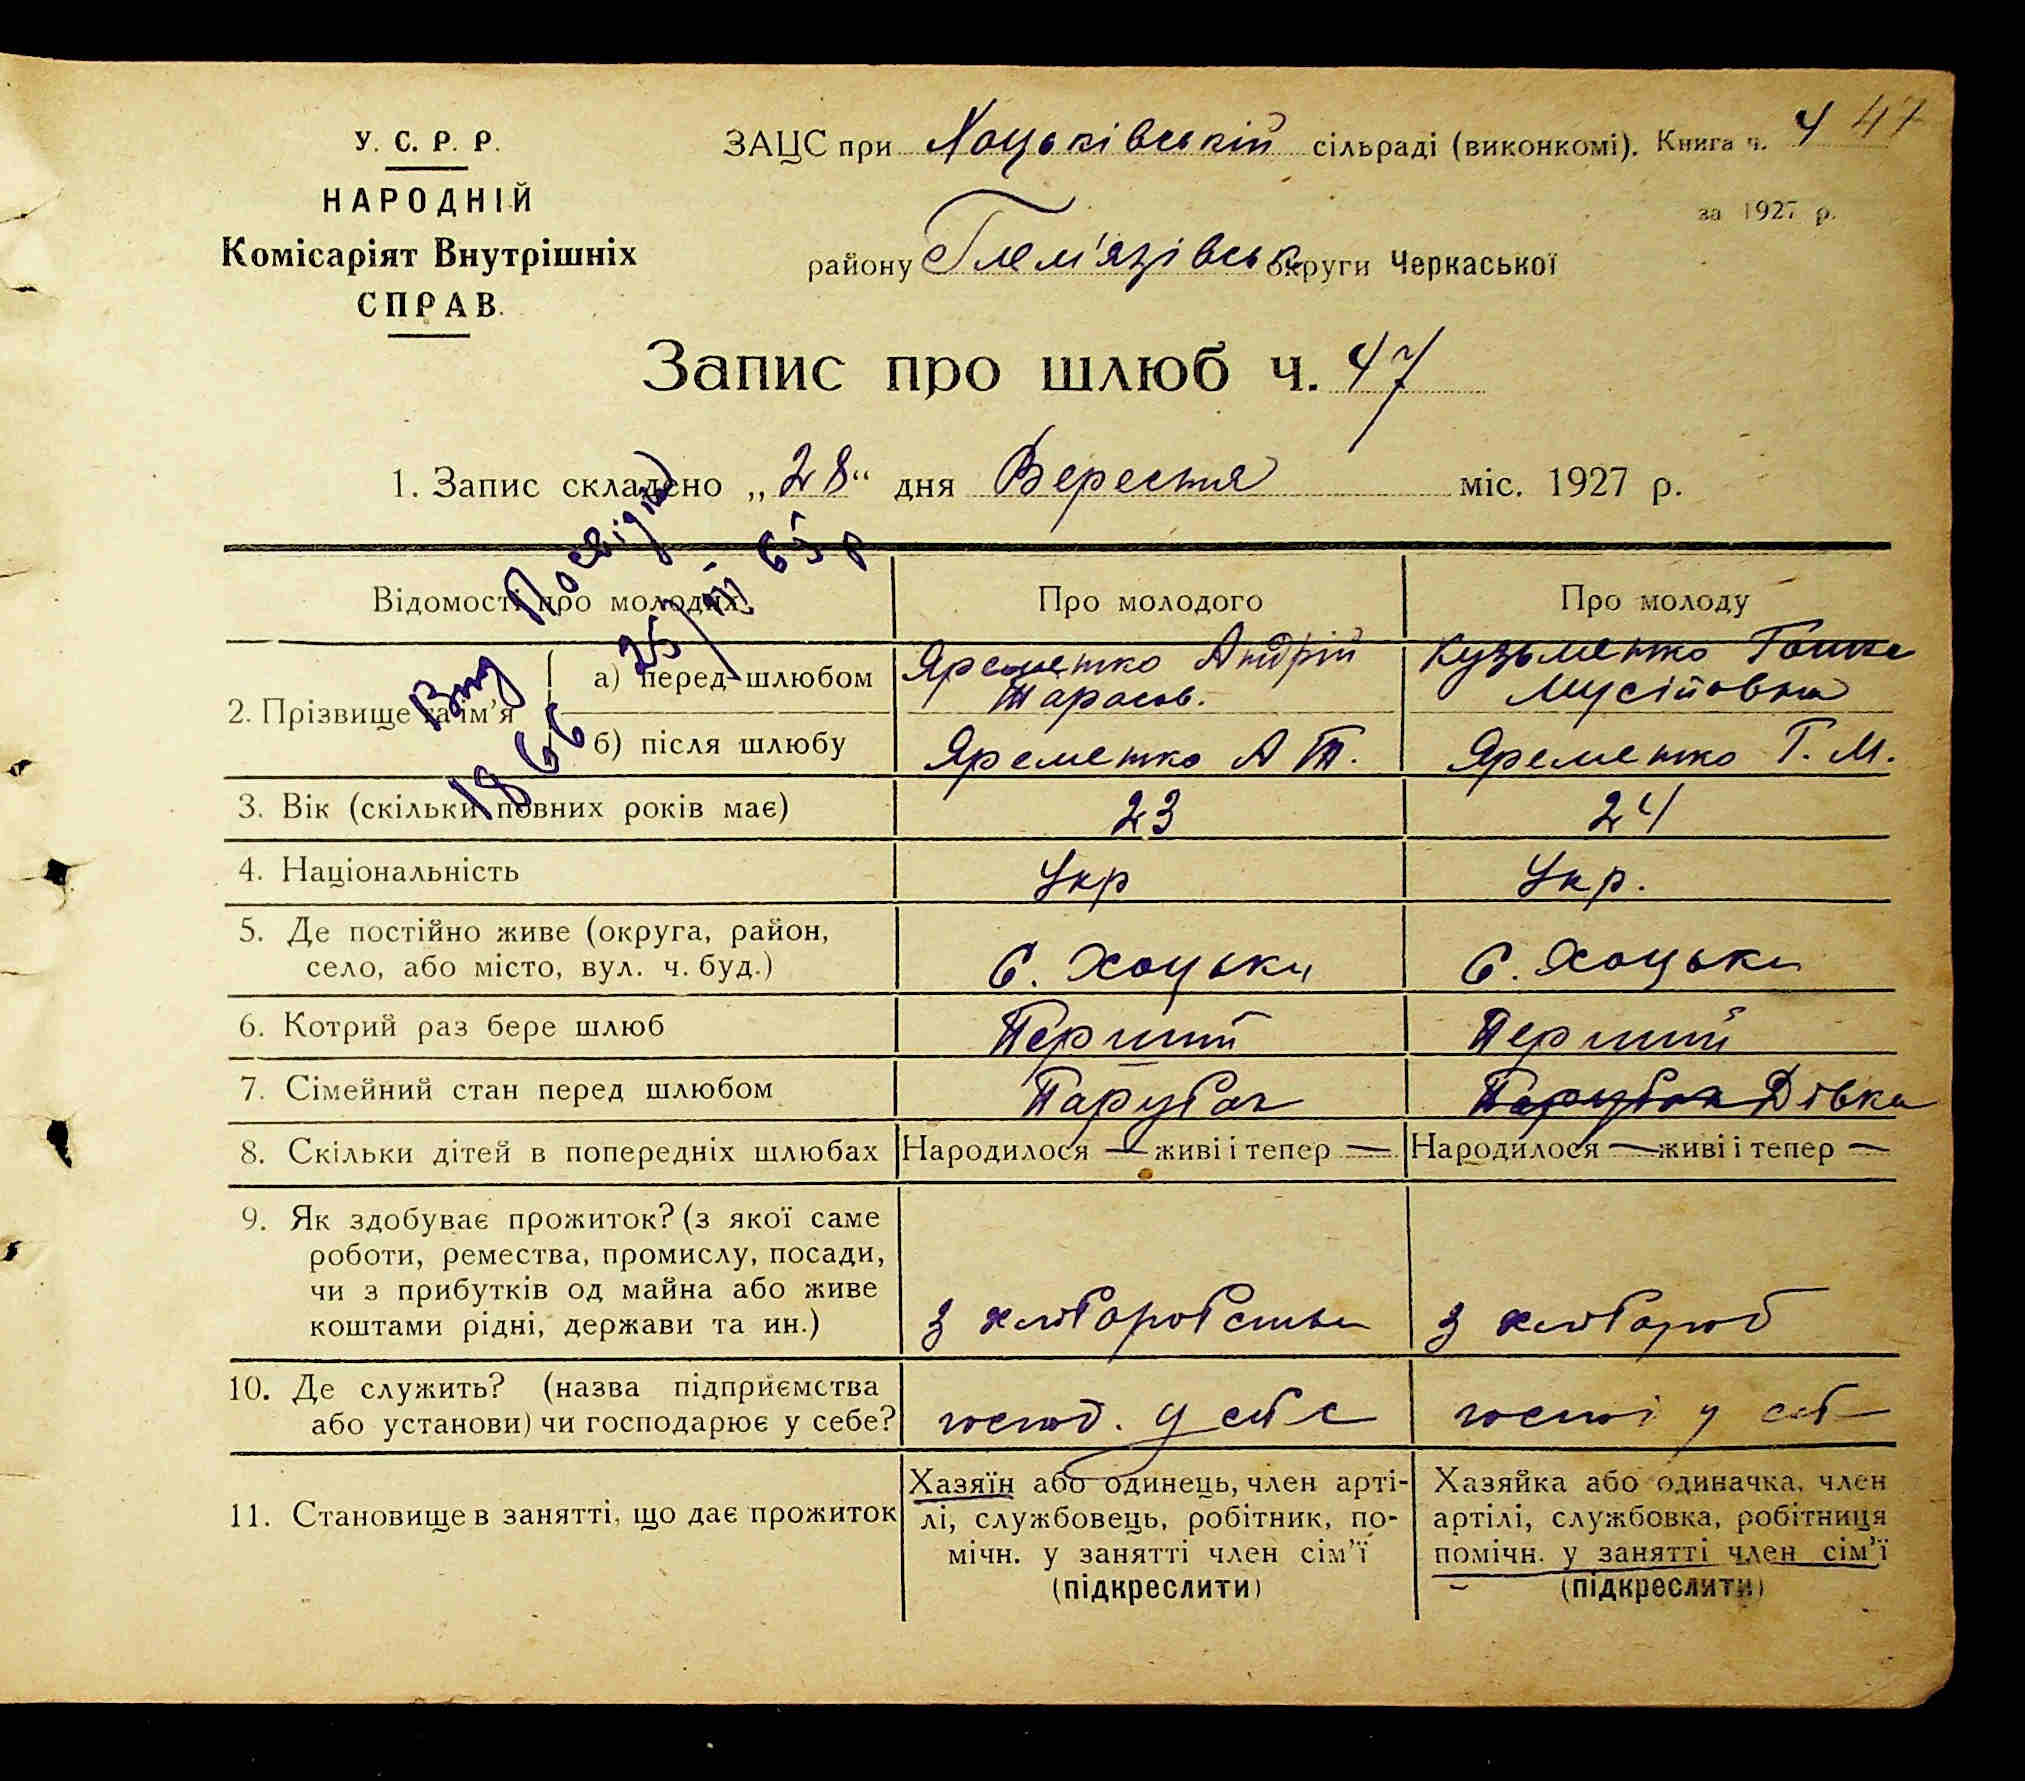 У. С. Р. Р.
НАРОДНІЙ
Комісаріят Внутрішніх
СПРАВ.
ЗАЦС при Хоцьківській сільраді (виконкомі). Книга ч. 4 47
за 1927 р.
району Гельм'язівськ округи Черкаської
Запис про шлюб ч. 47
1. Запис складено „28“ дня Вересня міс. 1927 р.
Відомості про молодих
Про молодого
Про молоду
2. Прізвище та ім'я
а) перед шлюбом
Яременко Андрій
Тарасов.
Кузьменко Ганна
Мусіївна
б) після шлюбу
Яременко А Т.
Яременко Г. М.
3. Вік (скільки повних років має)
23
24
4. Національність
Укр
Укр.
5. Де постійно живе (округа, район,
село, або місто, вул. ч. буд.)
с. Хоцьки
с. Хоцьки
6. Котрий раз бере шлюб
Перший
Перший
7. Сімейний стан перед шлюбом
Парубок
Парубок Дівка
8. Скільки дітей в попередніх шлюбах
Народилося — живі і тепер —
Народилося — живі і тепер —
9. Як здобуває прожиток? (з якої саме
роботи, ремества, промислу, посади,
чи з прибутків од майна або живе
коштами рідні, держави та ин.)
з хліборобства
з хлібороб
10. Де служить? (назва підприємства
або установи) чи господарює у себе?
господ. у себе
у себ
11. Становище в занятті, що дає прожиток
Хазяїн або одинець, член арті-
лі, службовець, робітник, по-
мічн. у занятті член сім'ї
(підкреслити)
Хазяйка або одиначка, член
артілі, службовка, робітниця
помічн. у занятті член сім'ї
(підкреслити)
Вид Посвідку
1866 25/III 65 р